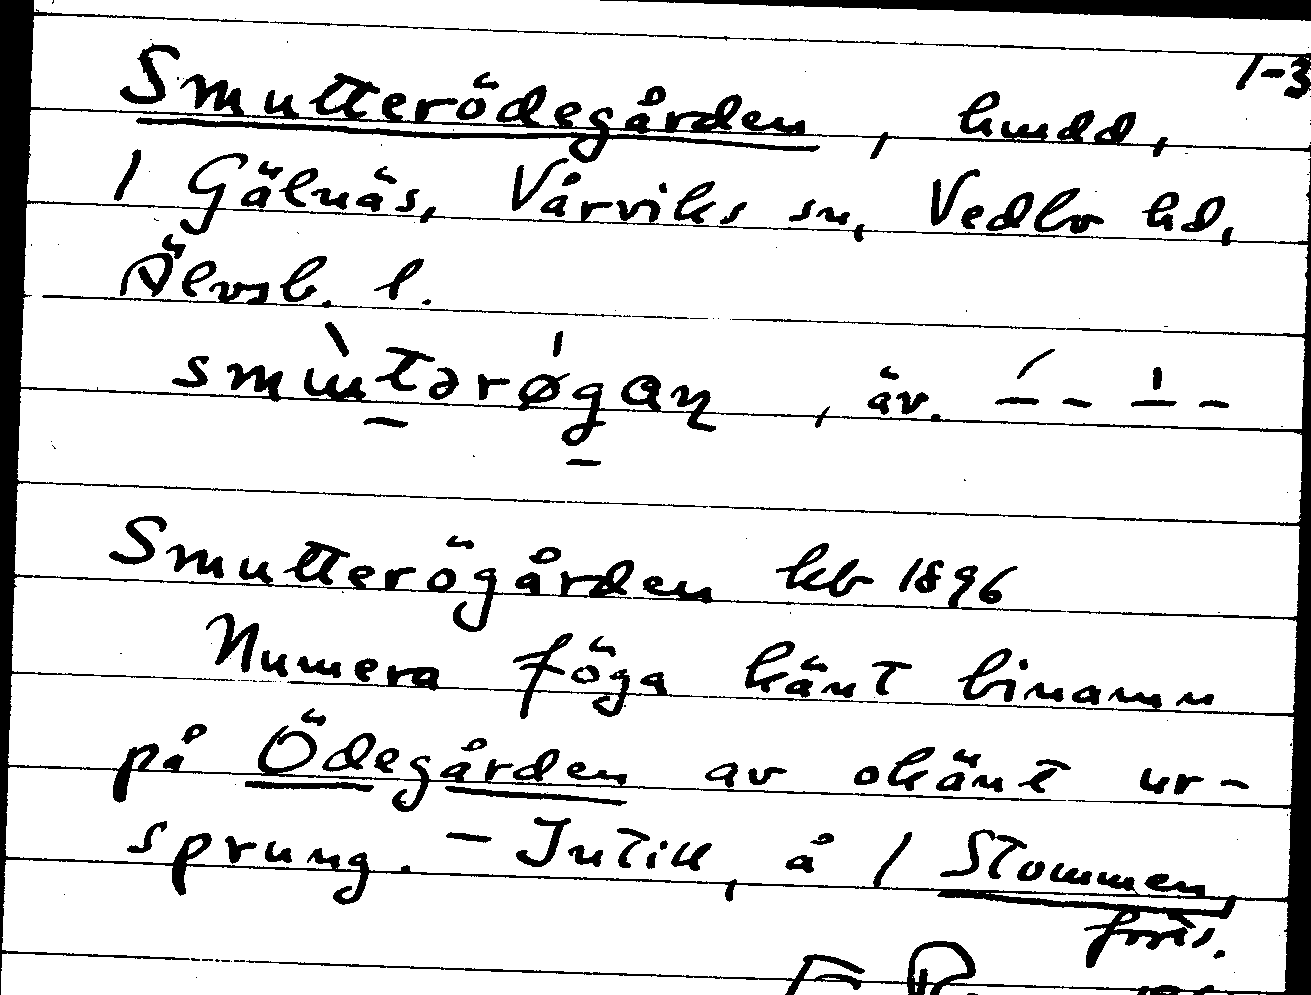 1-3
Smutterödegården, hmdd,
1 Gälnäs, Vårviks sn, Vedbo hd,
Älvsb. l.
smùtərøgaɳ, äv.
Smutterögården kb 1896
Numera föga känt binamn
på Ödegården av okänt ur-
sprung. – Intill, å 1 Stommen,